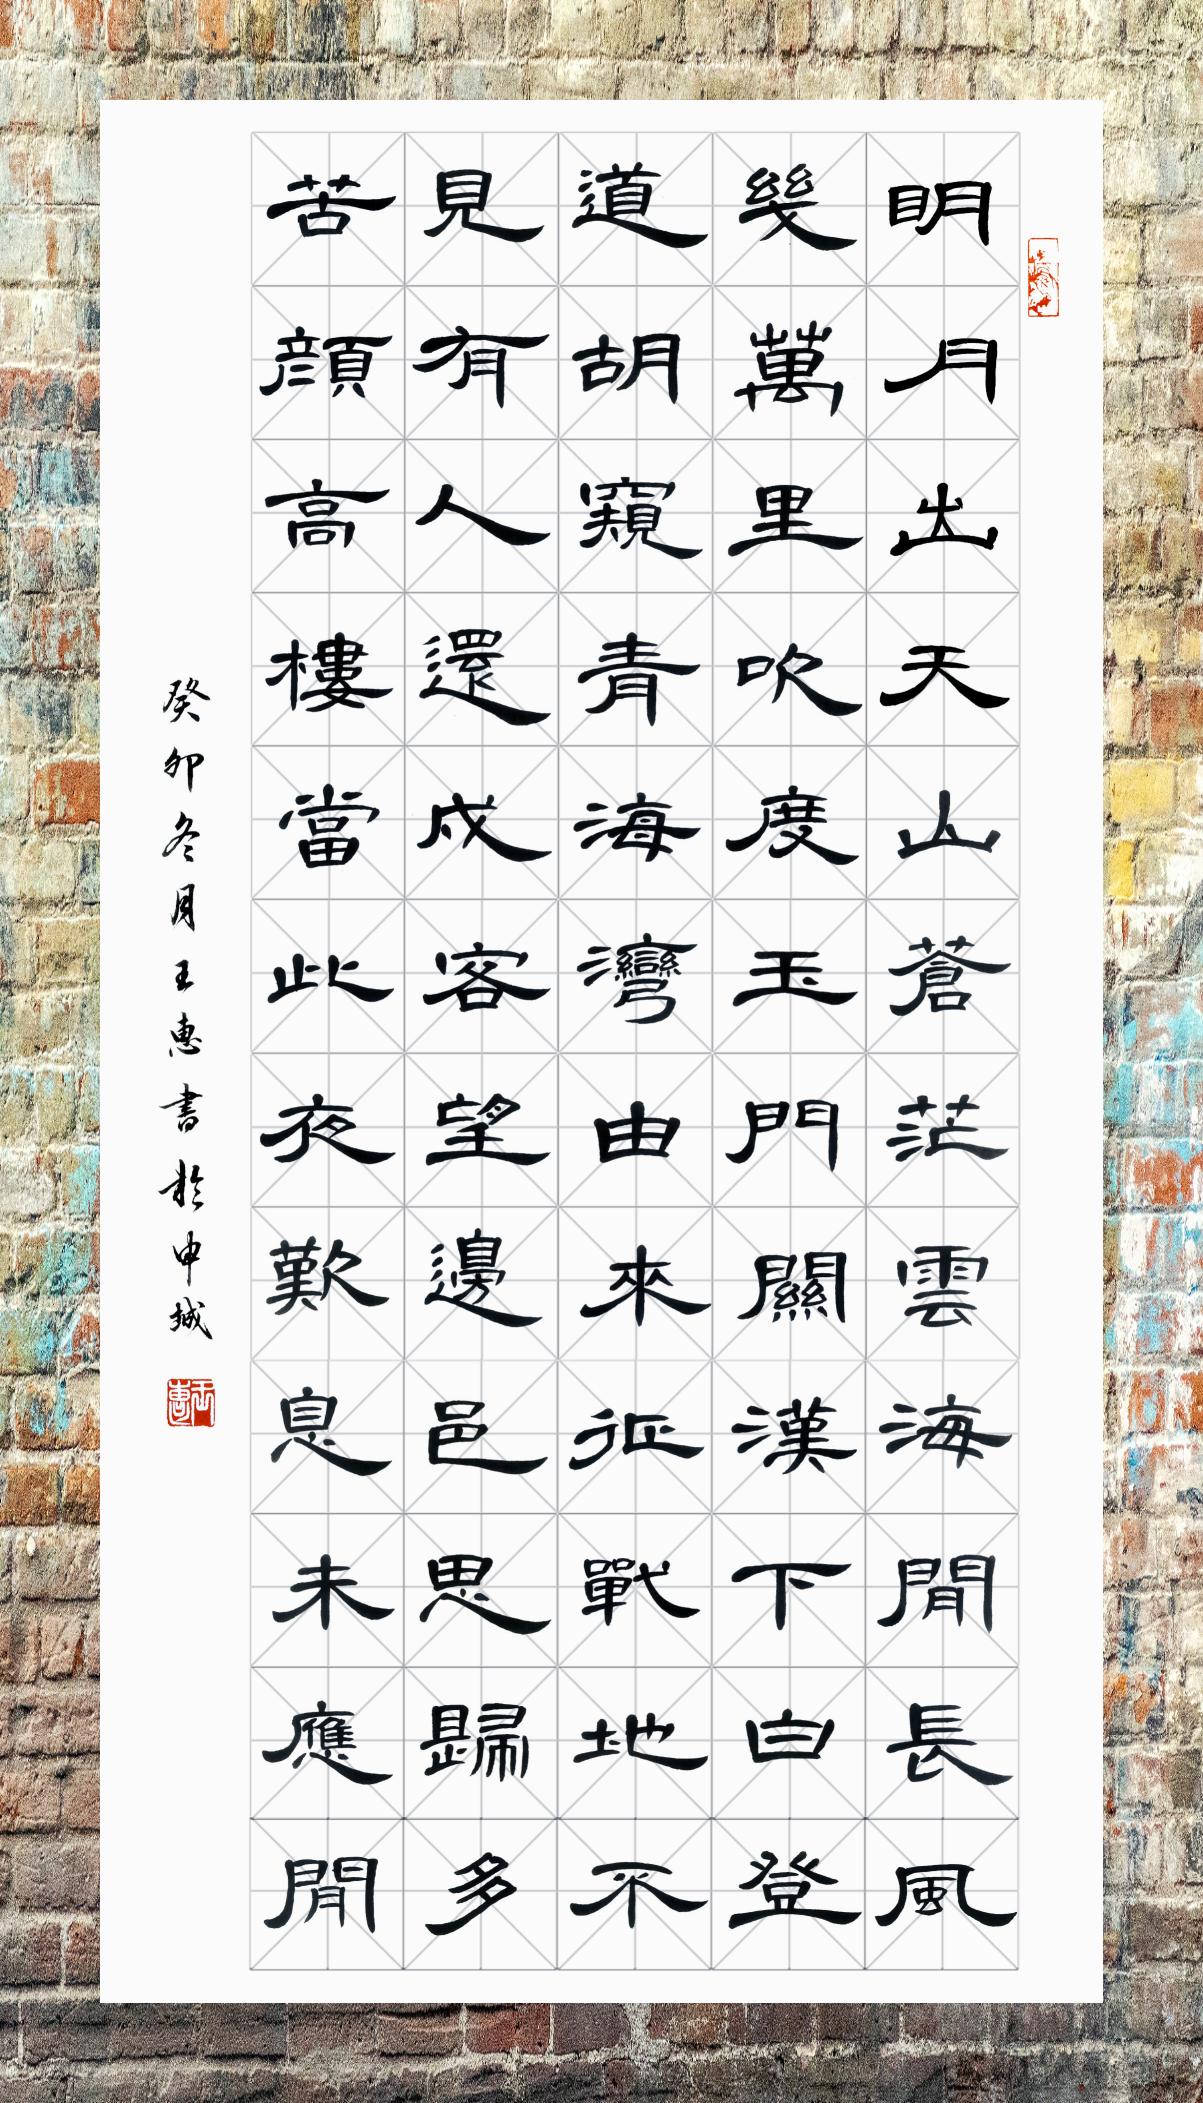 明月出天山蒼茫雲海閒長風
幾萬里吹度玉門關漢下白登
道胡窺青海灣由來征戰地不
見有人還戍客望邊邑思歸多
苦顔高樓當此夜歎息未應閒
癸卯冬月王惠書於申城
王惠